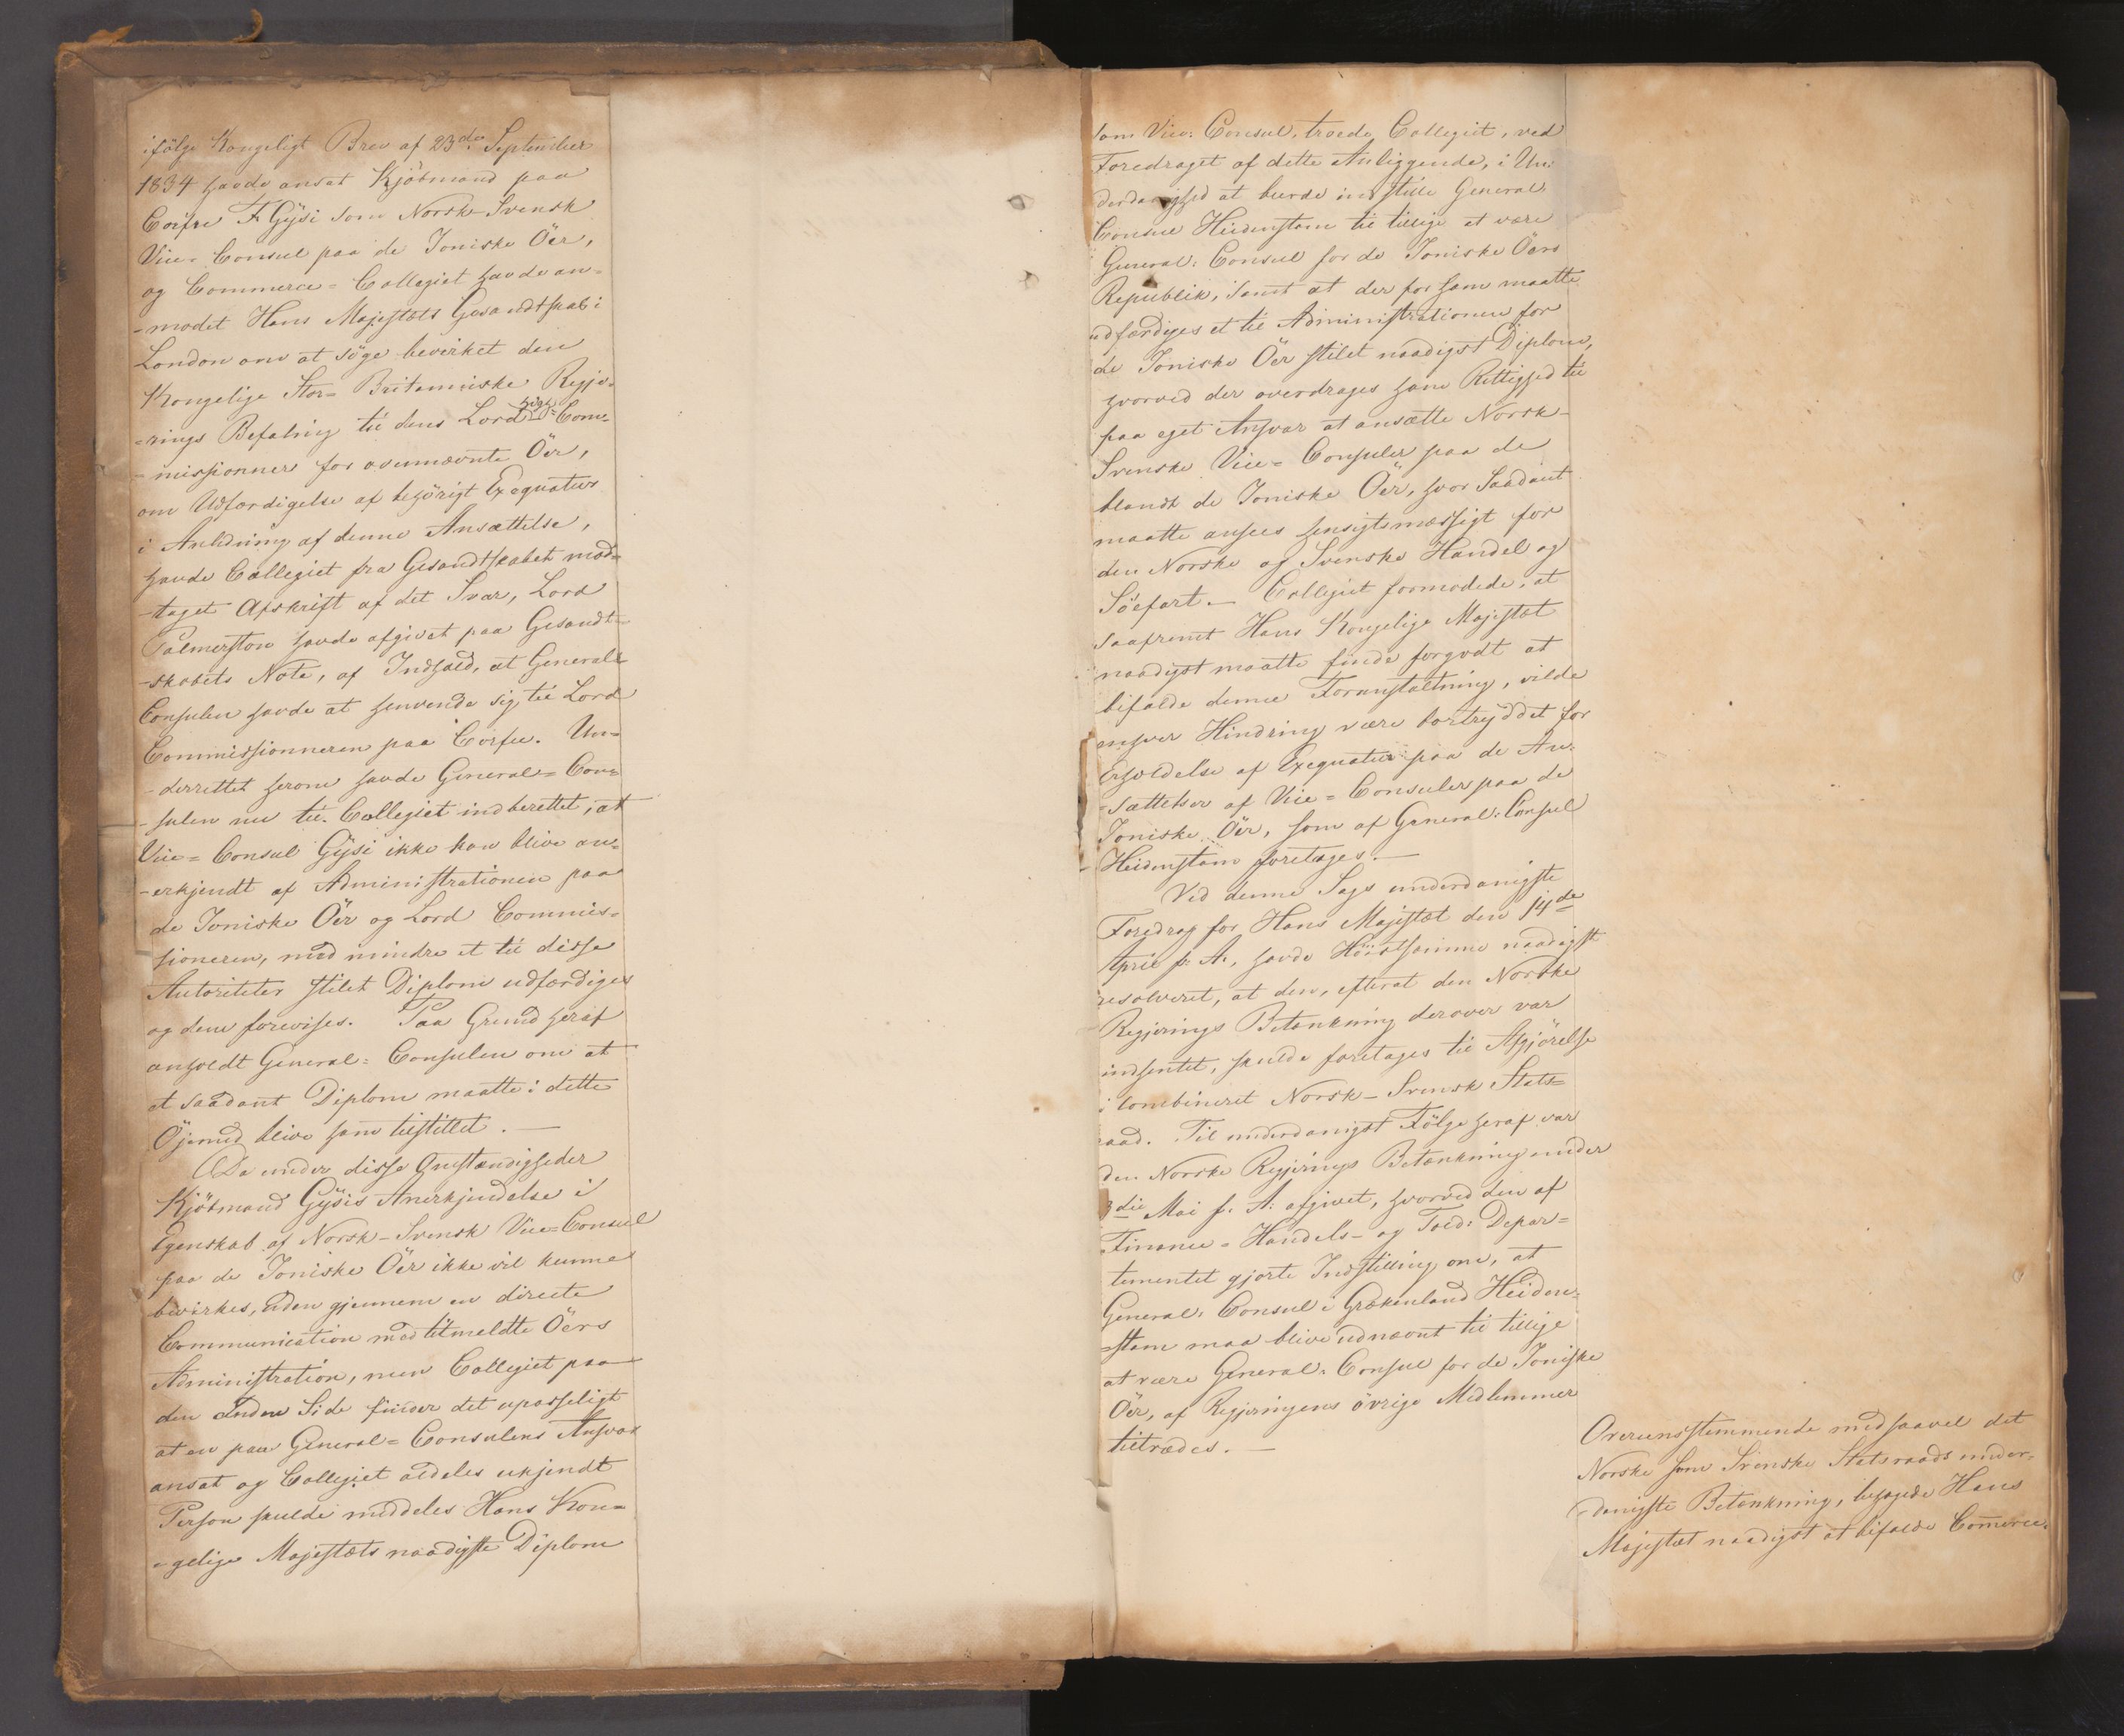 ifølge Kongeligt Brev af 23de September
1834 havde ansat Kjöbmand paa
Corfu F. Gÿsi som Norsk-Svensk
Vice-Consul paa de Joniske Öer,
og Commerce-Collegiet havde an-
-modet Hans Majestæts Gesandtskab i
London om at söge bevirket den
Kongelige Stor-Britanniske Regje-
-rings Befaling til dens Lord High-Com-
-missionner for ovennævnte Öer,
om Udfærdigelse af behörigt Exequatur
i Anledning af denne Ansættelse,
havde Collegiet fra Gesandtskabet mod-
-taget Afskrift af det Svar, Lord
Palmerston havde afgivet paa Gesandt-
-skabets Note, af Indhold, at General-
Consulen havde at henvende sig til Lord
Commissionneren paa Corfu. Un-
-derrettet herom havde General-Con-
-sulen nu til Collegiet indberettet, at
Vice-Consul Gÿsi ikke kan blive an-
-erkjendt af Administrationen paa
de Joniske Öer og Lord Commis-
sioneren, med mindre et til disse
Autoriteter stilet Diplom udfærdiges
og dem forevises. Paa Grund heraf
anholdt General-Consulen om at
et saadant Diplom maatte i dette
Öjemed blive ham tilstillet. —
Da under disse Omstændigheder
Kjöbmand Gÿsis Anerkjendelse i
Egenskab af Norsk-Svensk Vice-Consul
paa de Joniske Öer ikke vil kunne
bevirkes, uden gjennem en directe
Communication med bemeldte Öers
Administration, men Collegiet paa
den anden Side finder det upasseligt
at en paa General-Consulens Ansvar
ansat og Collegiet aldeles ukjendt
Person skulde meddeles Hans Kon-
-gelige Majestæts naadigste Diplom
som Vice-Consul, troede Collegiet, ved
Foredraget af dette Anliggende, i Un-
derdanighed at burde indstille General
Consul Heidenstam til tillige at være
General-Consul for de Joniske Öers
Republik, samt at der for ham maatte
udfærdiges et til Administrationen for
de Joniske Öer stilet naadigst Diplom,
hvorved der overdrages ham Rettighed til
paa eget Ansvar at ansætte Norsk-
Svenske Vice-Consuler paa de
blandt de Joniske Öer, hvor Saadant
maatte ansees hensigtsmæssigt for
den Norske og Svenske Handel og
Söefart. — Collegiet formodede, at
saafremt Hans Kongelige Majestæt
naadigst maatte finde forgodt at
bifalde denne Foranstaltning, vilde
enhver Hindring være bortryddet for
Erholdelse af Exequatur paa de An-
-sættelser af Vice-Consuler paa de
Joniske Öer, som af General-Consul
Heidenstam foretages. —
Ved denne Sags underdanigste
Foredrag for Hans Majestæt den 14de
April f. A., havde Höistsamme naadigst
resolveret, at den, efterat den Norske
Regjerings Betænkning derover var
indhentet, skulde foretages til Afgjörelse
i combineret Norsk-Svensk Stats-
raad. Til underdanigst Fölge heraf var
den Norske Regjerings Betænkning under
3die Mai f. A. afgivet, hvorved den af
Finance-Handels- og Told-Depar-
tementet gjorte Indstilling om, at
General-Consul i Grækenland Heiden-
-stam maa blive udnævnt til tillige
at være General-Consul for de Joniske
Öer, af Regjeringens övrige Medlemmer
tiltrædes. —
Overensstemmende med saavel det
Norske som Svenske Statsraads under-
-danigste Betænkning, behagede Hans
Majestæt naadigst at bifalde Commerce-